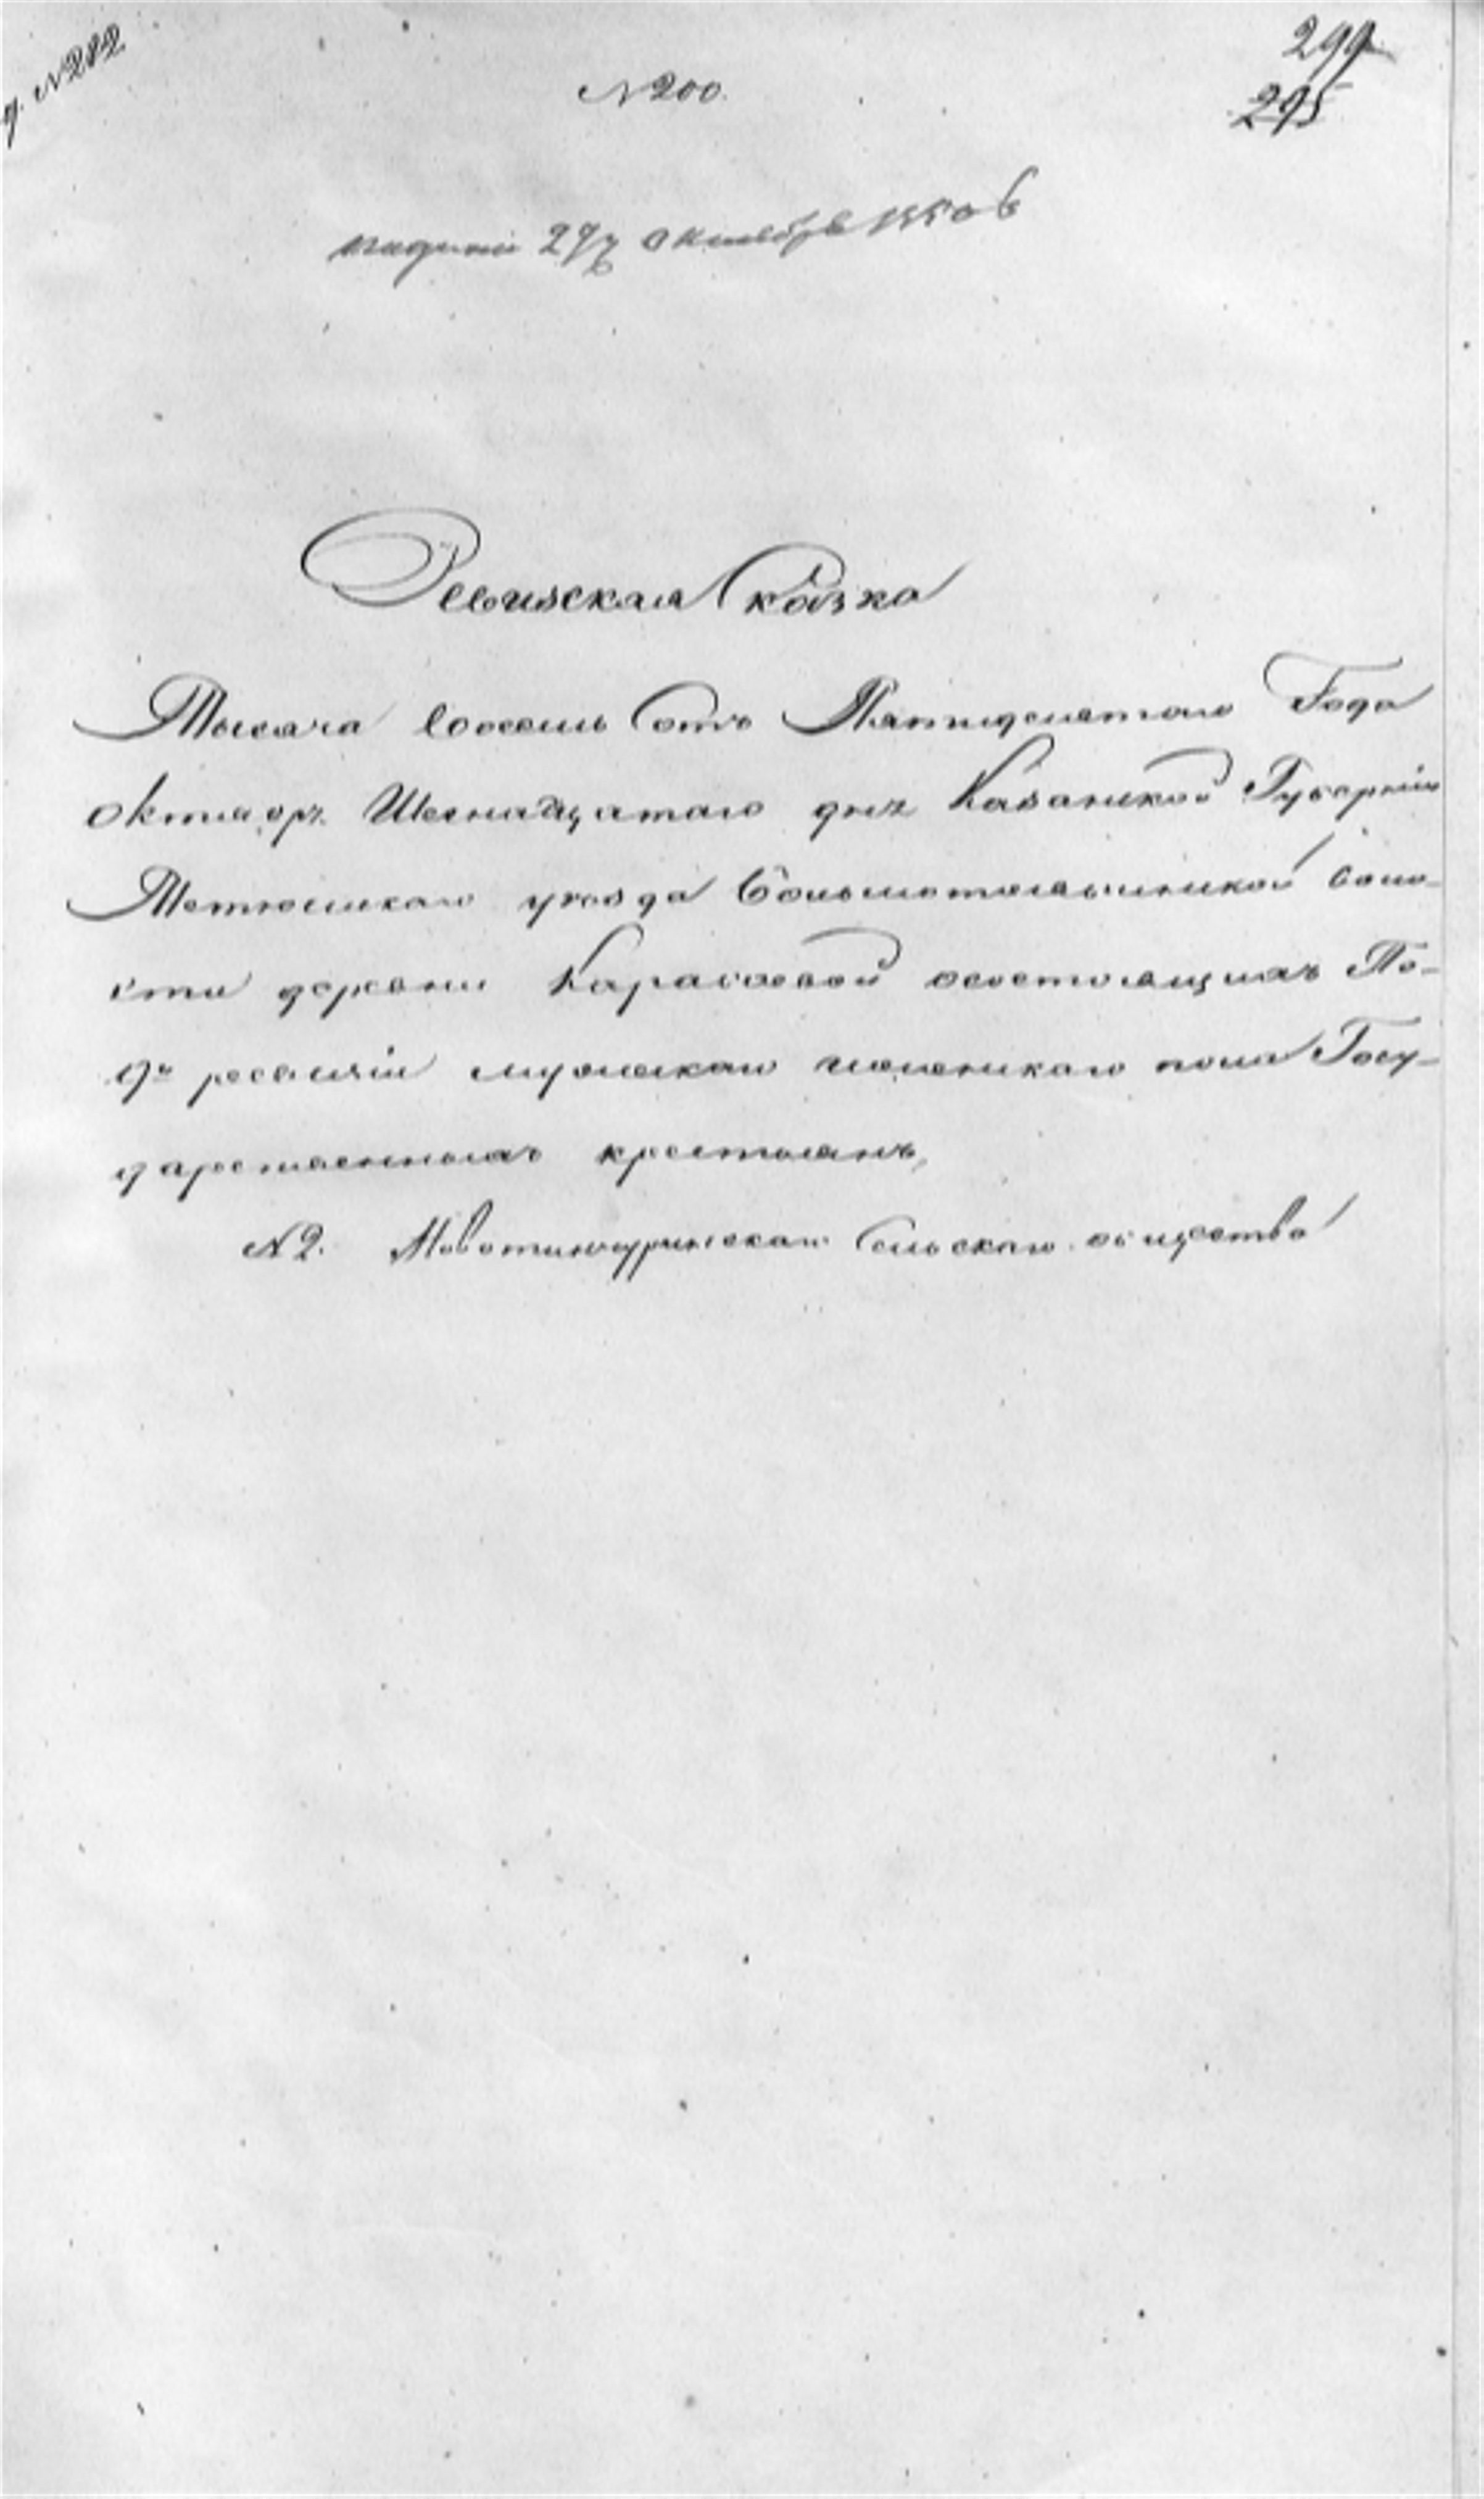 № 282
299
№ 200.
295
подана 27 октября 1850 г
Ревизская сказка
Тысяча восемь сотъ Пятидесятаго Года
октября Шеснадцатаго дня Казанской Губерніи
Тетюшскаго уѣзда Большотоябинской воло-
сти деревни Карабаевой осостоящихъ По-
9й ревизіи мужескаго женскаго пола Госу-
дарственныхъ крестьянъ,
№ 2. Сельскаго общества